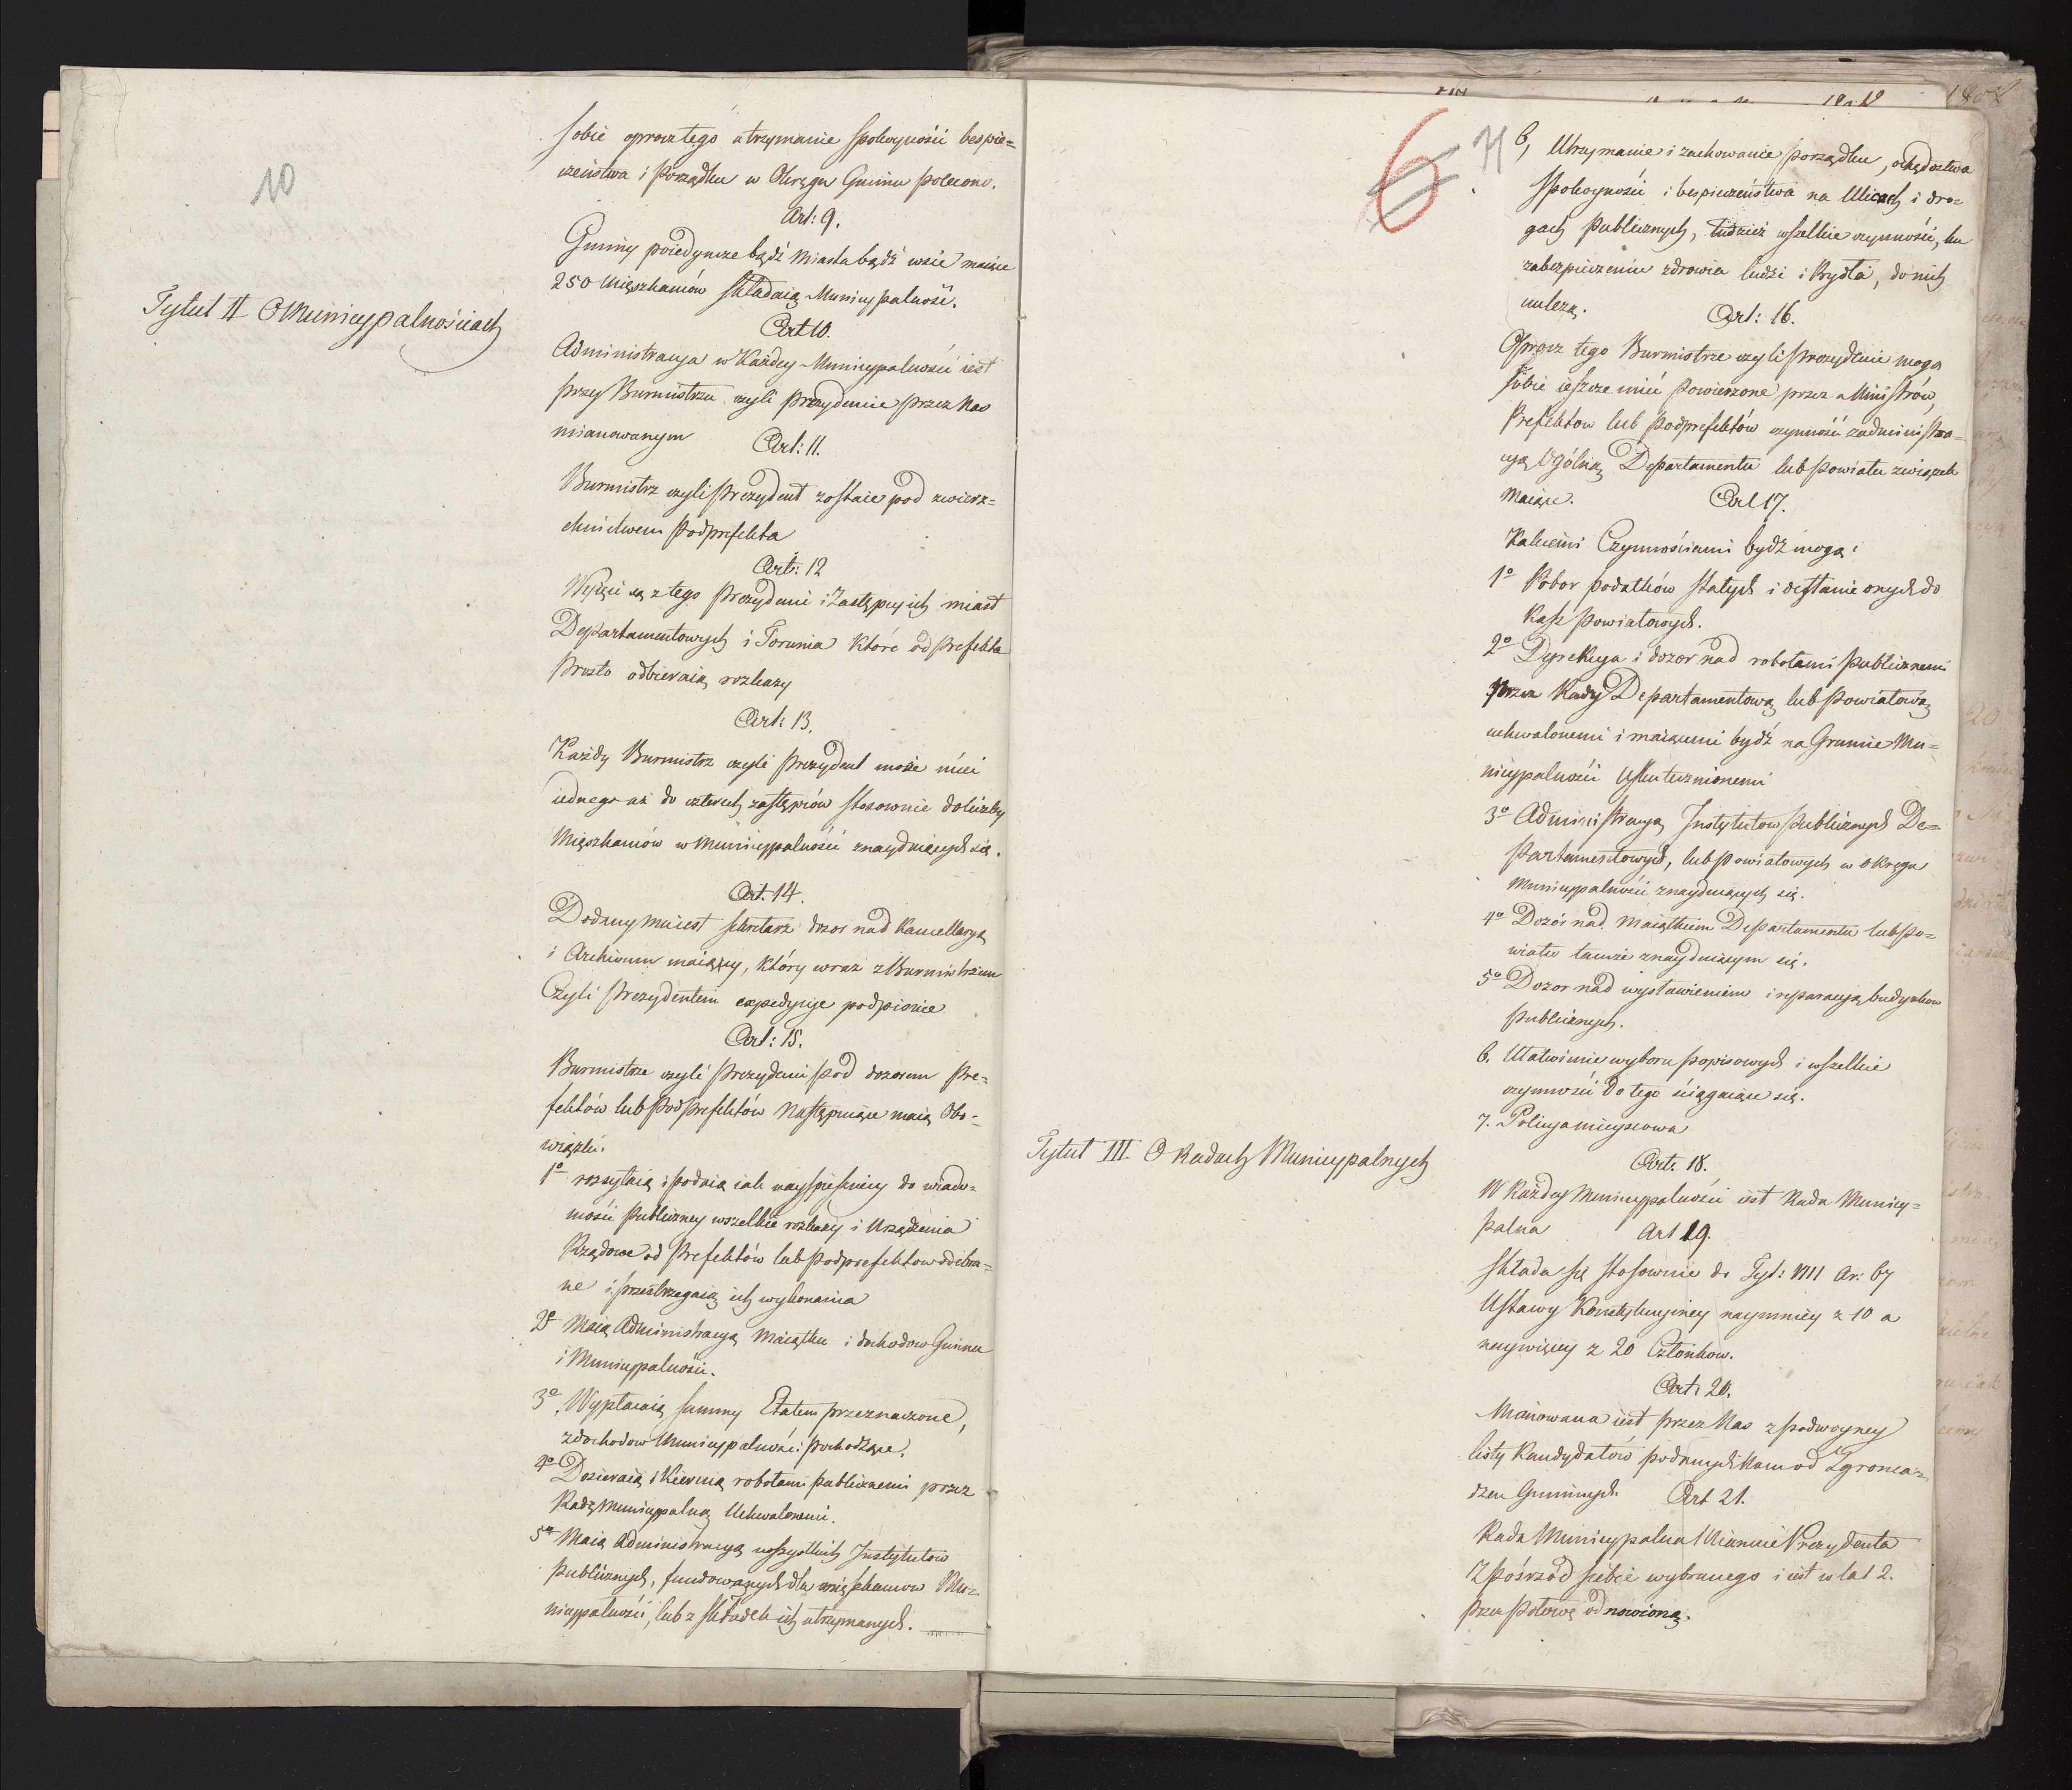 10
sobie oprocz tego utrzymanie spokoyności bespie=
czeństwa i porządku w Okręgu Gminu polecono.
Art: 9.
Gminy poiedyncze bądź Miasta bądź wsie maiące
250 Mięszkańców składaią Municypalność.
Tytuł II O Municypalnościach
Art 10.
Administracya w Każdey Municypalności iest
przy Burmistrzu czyli Prezydencie przez Nas
mianowanym
Art: 11.
Burmistrz czyli Prezydent zostaie pod zwierz=
chnictwem Podprefekta
Art: 12
Wyięci są z tego Prezydenci i Zastępcy ich miast
Departamentowych i Torunia Które od Prefekta
Prosto odbieraią rozkazy
Art: 13.
Każdy Burmistrz czyli Prezydent może mieć
iednego aż do czterech zastępców stosownie do liczby
Mięszkańców w Municypalności znayduiących się.
Art. 14.
Dodany mu iest sekretarz dozor nad Kancellaryą
i Archiwum maiący, który wraz z Burmistrzem
Czyli Prezydentem expedycye podpisuie
Art: 15.
Burmistrze czyli Prezydenci pod dozorem Pre=
fektów lub Podprefektów Następuiące maią Obo=
wiązki.
1o rozsyłaią i podaią iak nayspieszniey do wiado=
mości Publiczney wszelkie rozkazy i Urządzenia
Rządowe od Prefektów lub Podprefektow odebra=
ne i przestrzegaią ich wykonania
2o Maią Administracyą Maiątku i dochodow Gminu
i Municypalności.
3o Wypłacaią summy Etatem przeznaczone,
z dochodow Municypalności pochodzące.
4o Dozieraią i Kieruią robotami publicznemi przez
Radę Municypalną Uchwalonemi.
5o Maią Administracyą wszystkich Instytutow
Publicznych, fundowanych dla mięszkancow Mu=
nicypalności, lub z składek ich utrzymanych.
6
6, Utrzymanie i zachowanie porządku, ochędostwa
Spokoyności i bespieczeństwa na Ulicach i dro=
gach Publicznych, tudzież wszelkie czynności, ku
zabezpieczeniu zdrowia ludzi i Bydła, do nich
należą.
Art: 16.
Oprocz tego Burmistrze czyli Prezydenci mogą
sobie ieszcze mieć Powierzone przez Ministrów,
Prefektow lub Podprefektów czynności z administra=
cyą Ogólną Departamentu lub Powiatu związek
Maiące.
Art 17.
Takiemi Czynnościami bydź mogą:
1o Pobor podatków stałych i odesłanie onych do
Kass Powiatowych.
2o Dyrekcya i dozor nad robotami Publicznemi
przez Rady Departamentową lub Powiatową
uchwalonemi i maiącemi bydź na Gruncie Mu=
nicypalności Uskutecznionemi
3o Administracyą Instytutow Publicznych De=
partamentowych, lub Powiatowych w Okręgu
Municypalności znayduiących się.
4o Dozór nad Maiątkiem Departamentu lub Po=
wiatu tamże znayduiącym się.
5o Dozor nad wystawieniem i reparacyą budynkow
Publicznych.
6. Ułatwienie wyboru popisowych i wszelkie
czynności do tego ściągaiące się.
7. Policya mieyscowa
Tytuł III. O Radach Municypalnych
Art: 18.
W Każdey Municypalności iest Rada Municy=
palna
Art 19.
Składa się stosownie do Tyt: VIII Ar: 67
Ustawy Konstytucyiney naymniey z 10 a
naywięcey z 20 Członkow.
Art: 20.
Mianowana iest przez Nas z podwoyney
listy Kandydatów podanych Nam od Zgroma=
dzeń Gminnych.
Art 21.
Rada Municypalna Mianuie Prezydenta
Z pośrzód siebie wybranego i iest w lat 2.
Przez Połowę odnowioną.